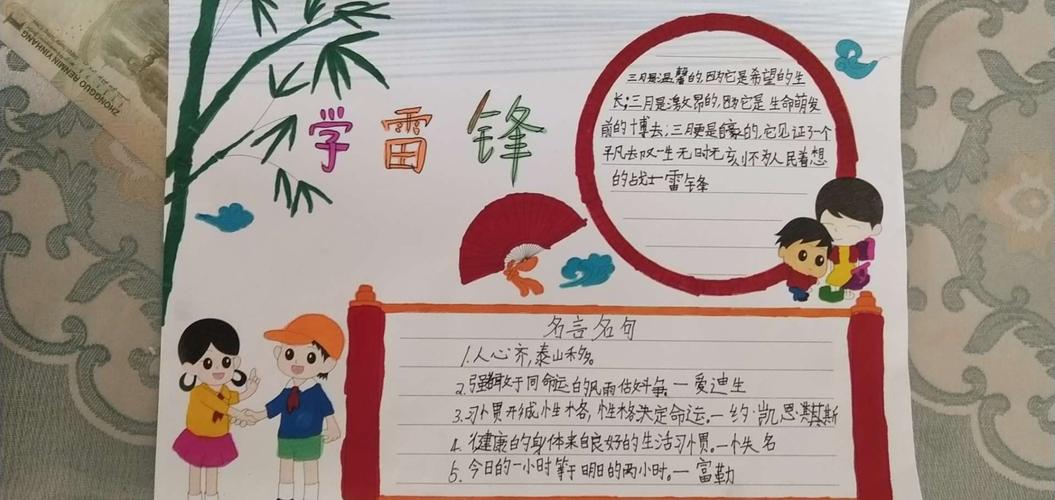 ZHONGGUO RENMIN YINHANG
学雷锋
三月是温馨的,因为它是希望的生
长;三月是激昂的,因为它是生命萌发
前的博去;三月更是自豪的,它见证了一个
平凡去以一生无时无刻不为人民着想
的战士雷锋
名言名句
1.人心齐,泰山移。
2.强者敢于同命运的风雨做斗争。一爱迪生
3.习惯形成性格,性格决定命运。一约·凯恩斯
4.健康的身体来自良好的生活习惯。一佚名
5.今日的一小时等于明日的两小时。一富勒